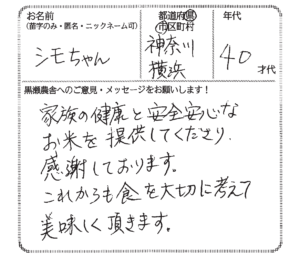 お名前
(苗字のみ・匿名・ニックネーム可)
シモちゃん
都道府県
市区町村
神奈川
横浜
年代
40才代
黒瀬農舎へのご意見・メッセージをお願いします！
家族の健康と安全安心な
お米を提供してくださり、
感謝しております。
これからも食を大切に考えて
美味しく頂きます。